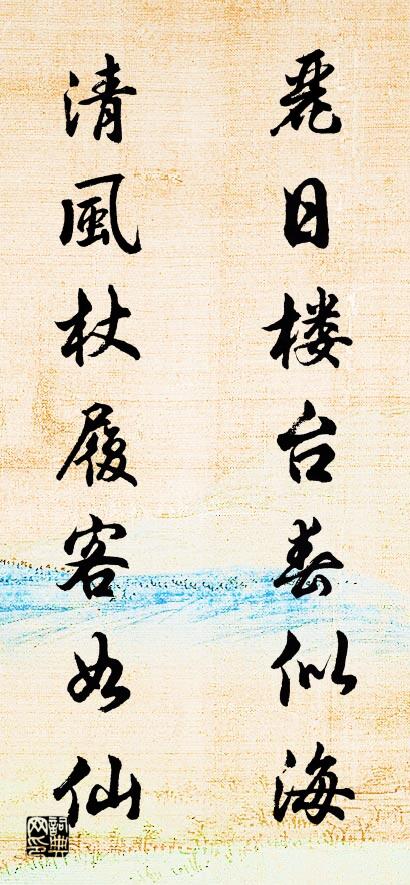 麗日楼台春似海
清風杖履客如仙
詞典网印